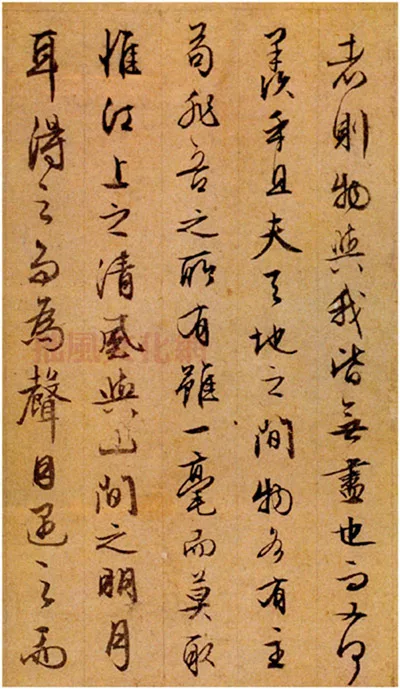 者則物與我皆無盡也而又何
羨乎且夫天地之間物各有主
苟非吾之所有雖一毫而莫取
惟江上之清風與山間之明月
耳得之而為聲目遇之而